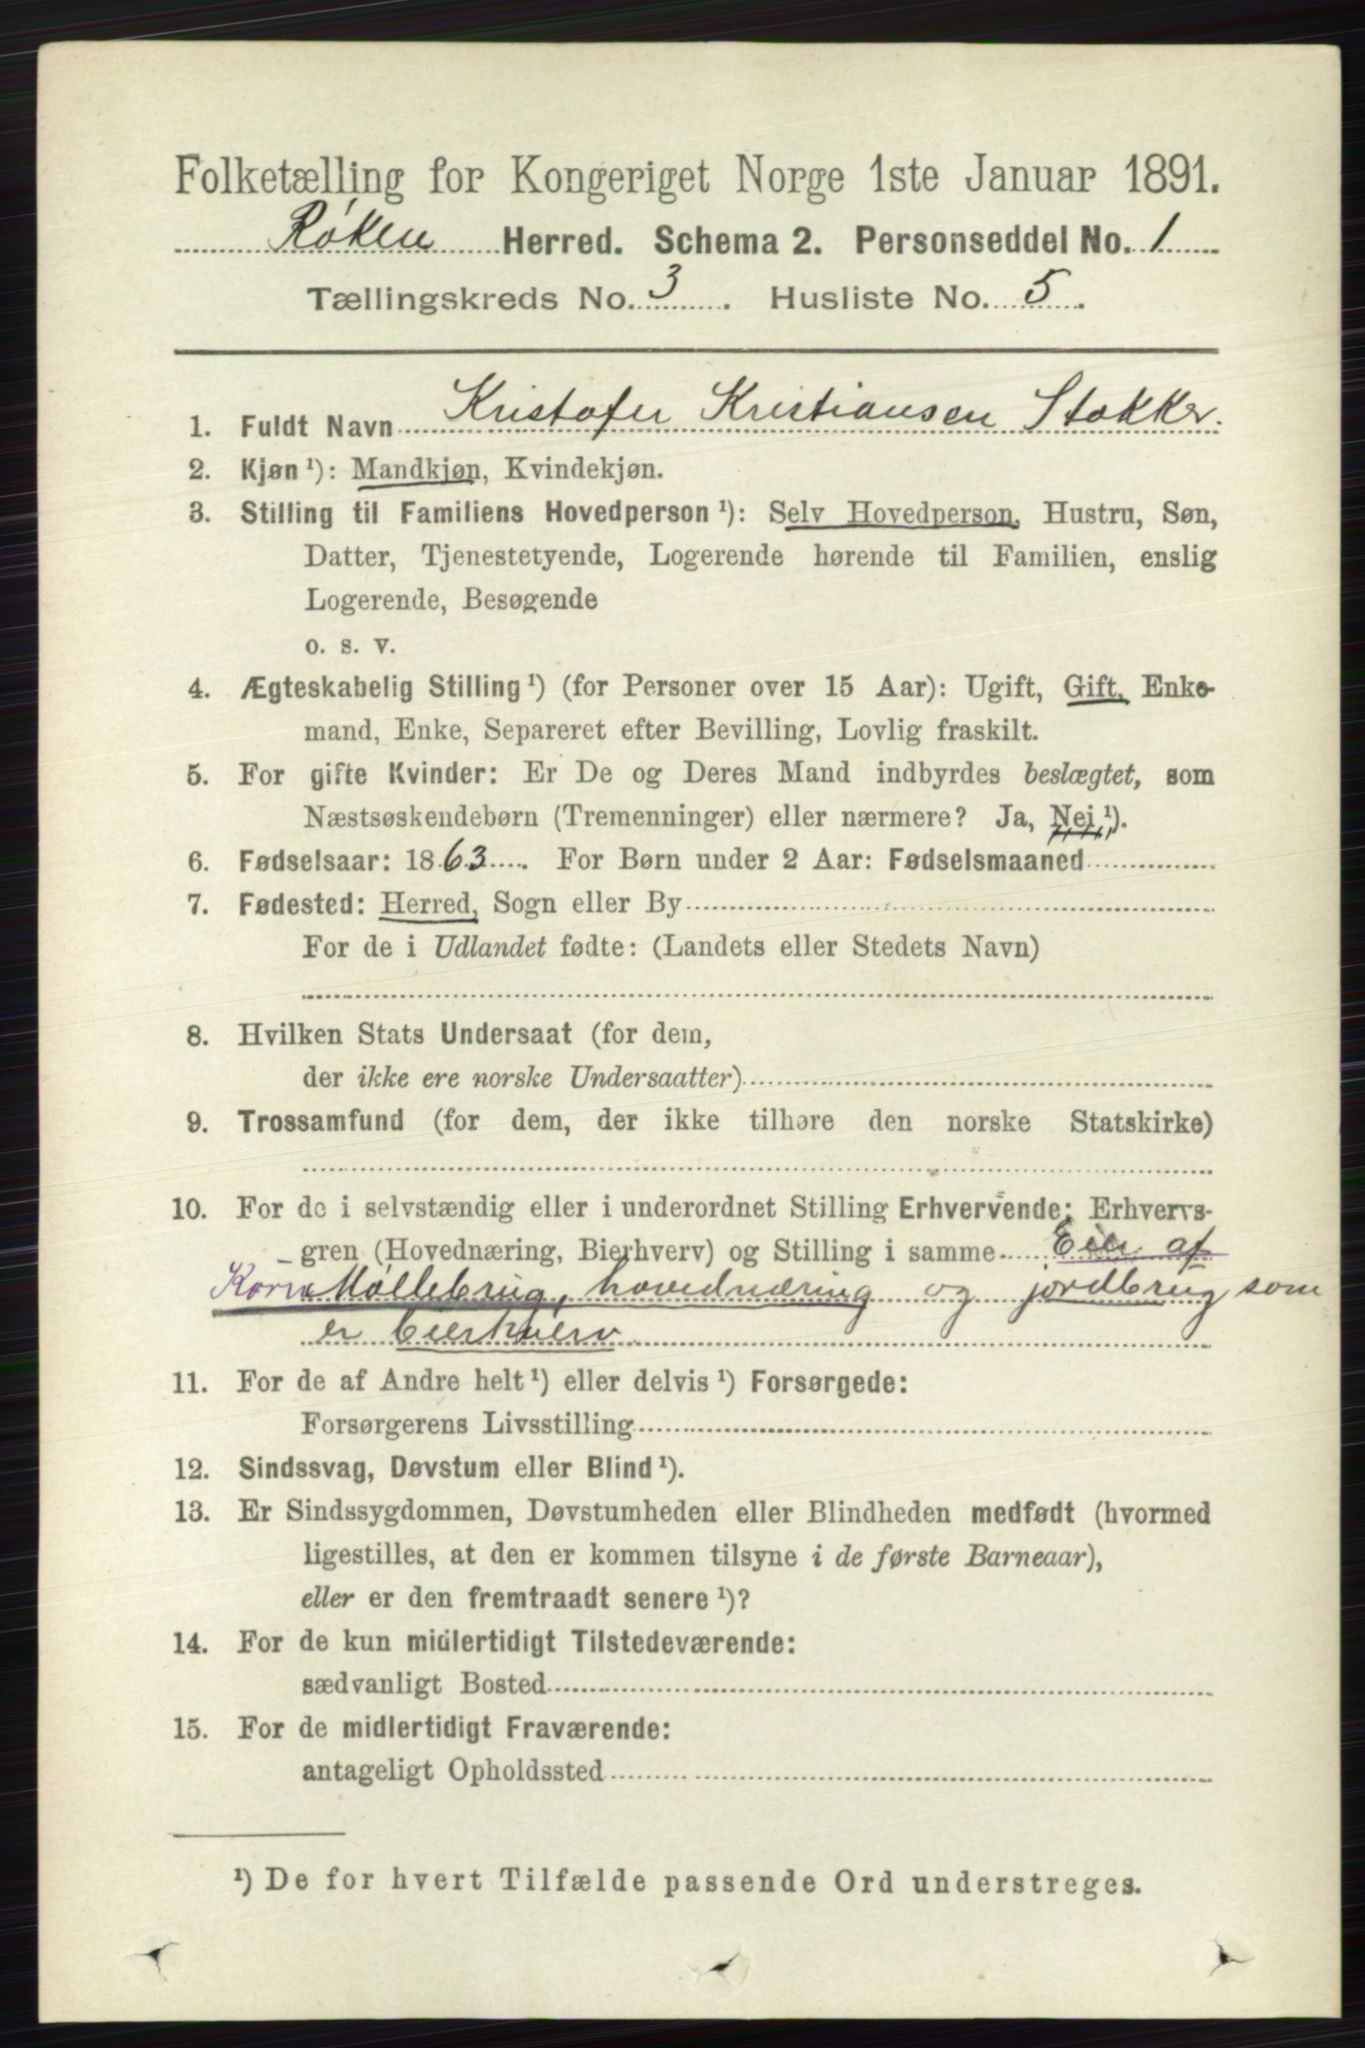 Folketælling for Kongeriget Norge 1ste Januar 1891.
Røken Herred. Schema 2. Personseddel No. 1
Tællingskreds No. 3. Husliste No. 5.
1. Fuldt Navn Kristofer Kristiansen Stokker.
2. Kjøn ¹): Mandkjøn, Kvindekjøn.
3. Stilling til Familiens Hovedperson ¹): Selv Hovedperson, Hustru, Søn,
Datter, Tjenestetyende, Logerende hørende til Familien, enslig
Logerende, Besøgende
o. s. v.
4. Ægteskabelig Stilling ¹) (for Personer over 15 Aar): Ugift, Gift, Enke-
mand, Enke, Separeret efter Bevilling, Lovlig fraskilt.
5. For gifte Kvinder: Er De og Deres Mand indbyrdes beslægtet, som
Næstsøskendebørn (Tremenninger) eller nærmere? Ja, Nei ¹).
6. Fødselsaar: 1863. For Børn under 2 Aar: Fødselsmaaned
7. Fødested: Herred, Sogn eller By
For de i Udlandet fødte: (Landets eller Stedets Navn)
8. Hvilken Stats Undersaat (for dem,
der ikke ere norske Undersaatter)
9. Trossamfund (for dem, der ikke tilhøre den norske Statskirke)
10. For de i selvstændig eller i underordnet Stilling Erhvervende: Erhvervs-
gren (Hovednæring, Bierhverv) og Stilling i samme Eier af
Korn Møllebrug, hovednæring og jordbrug som
er bierhverv.
11. For de af Andre helt ¹) eller delvis ¹) Forsørgede:
Forsørgerens Livsstilling
12. Sindssvag, Døvstum eller Blind ¹).
13. Er Sindssygdommen, Døvstumheden eller Blindheden medfødt (hvormed
ligestilles, at den er kommen tilsyne i de første Barneaar),
eller er den fremtraadt senere ¹)?
14. For de kun midlertidigt Tilstedeværende:
sædvanligt Bosted
15. For de midlertidigt Fraværende:
antageligt Opholdssted
¹) De for hvert Tilfælde passende Ord understreges.